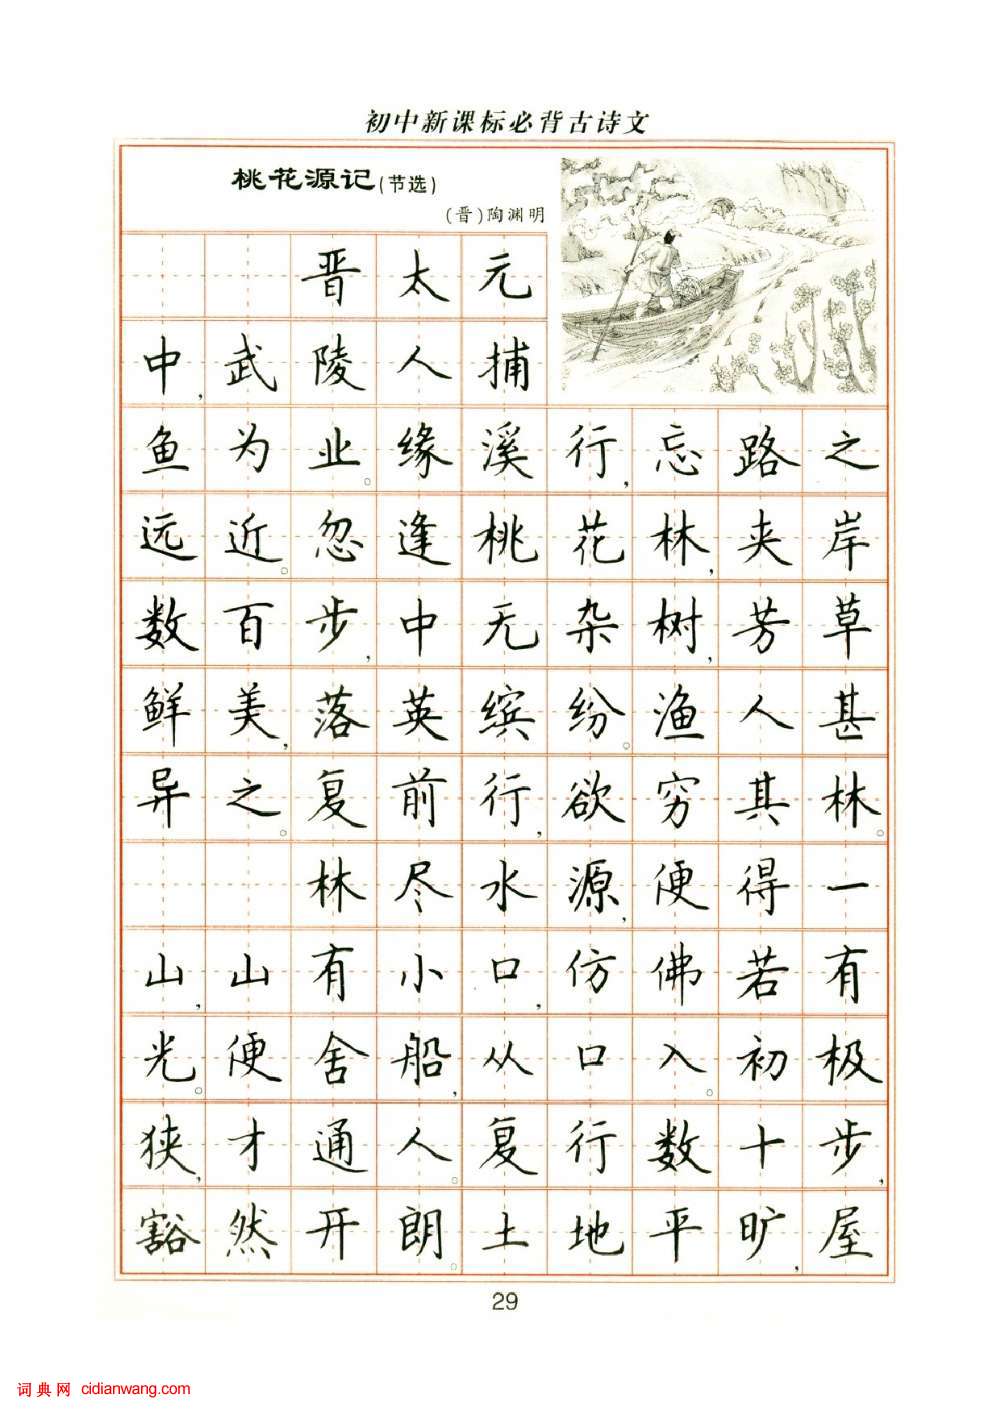 初中新课标必背古诗文
桃花源记(节选)
(晋)陶渊明
晋太元
中,武陵人捕
鱼为业。缘溪行,忘路之
远近。忽逢桃花林,夹岸
数百步,中无杂树,芳草
鲜美,落英缤纷。渔人甚
异之。复前行,欲穷其林。
林尽水源,便得一
山,山有小口,仿佛若有
光。便舍船,从口入。初极
狭,才通人。复行数十步,
豁然开朗。土地平旷,屋
29
词典网 cidianwang.com